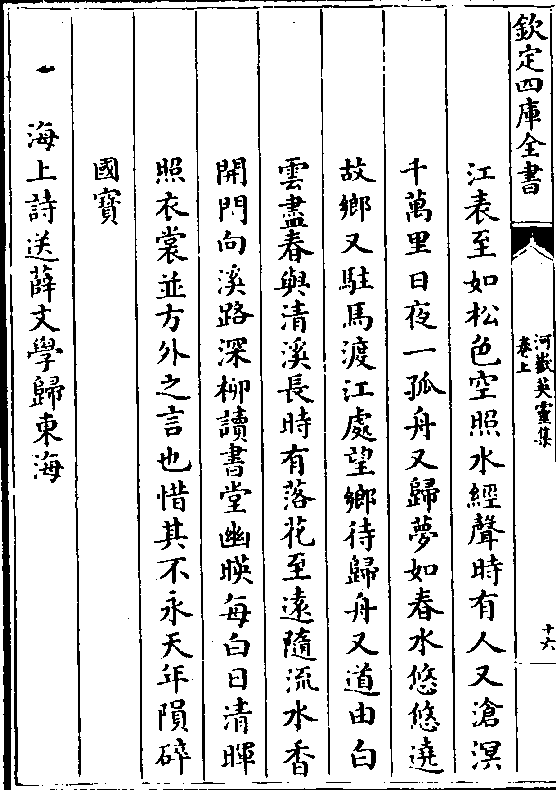 欽定四庫全書
河嶽英靈集
卷上
十六
江表至如松色空照水經聲時有人又滄溟
千萬里日夜一孤舟又歸夢如春水悠悠遶
故鄉又駐馬渡江處望鄉待歸舟又道由白
雲盡春與清溪長時有落花至遠隨流水香
開門向溪路深柳讀書堂幽暎每白日清暉
照衣裳並方外之言也惜其不永天年隕碎
國寶
海上詩送薛文學歸東海